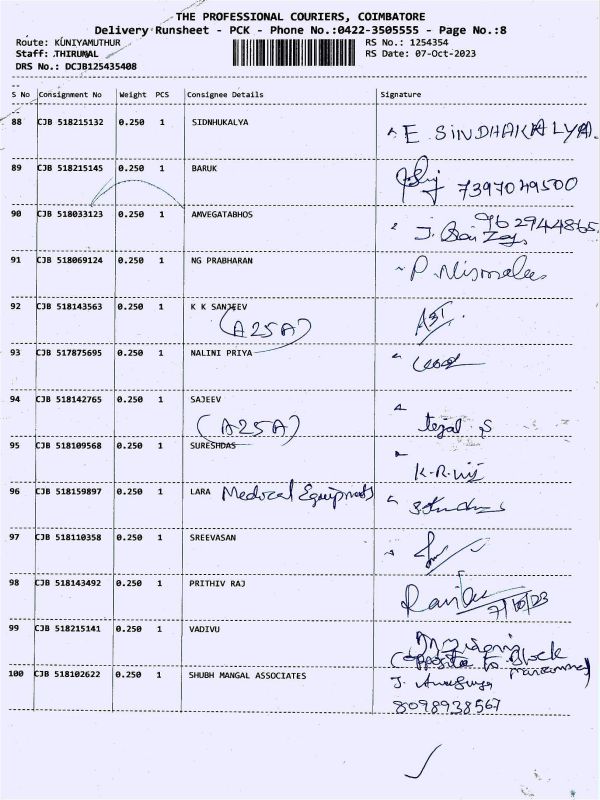 THE PROFESSIONAL COURIERS, COIMBATORE
Delivery Runsheet - PCK - Phone No.:0422-3505555 - Page No.:8
Route: KUNIYAMUTHUR RS No.: 1254354
Staff: THIRUMAL RS Date: 07-Oct-2023
DRS No.: DCJB125435408
S No Consignment No Weight PCS Consignee Details Signature
88 CJB 518215132 0.250 1 SIDNHUKALYA E SINDHAKALYA.
89 CJB 518215145 0.250 1 BARUK 7397049500
90 CJB 518033123 0.250 1 AMVEGATABHOS 9629744865
J.
91 CJB 518069124 0.250 1 NG PRABHARAN P. Nirmala
92 CJB 518143563 0.250 1 K K SANJEEV
(A25A)
93 CJB 517875695 0.250 1 NALINI PRIYA
94 CJB 518142765 0.250 1 SAJEEV
(A25A) tejal S
95 CJB 518109568 0.250 1 SURESHDAS
K.R.
96 CJB 518159897 0.250 1 LARA Medocal Equipments
97 CJB 518110358 0.250 1 SREEVASAN
98 CJB 518143492 0.250 1 PRITHIV RAJ
7/10/23
99 CJB 518215141 0.250 1 VADIVU
opposite to Block
100 CJB 518102622 0.250 1 SHUBH MANGAL ASSOCIATES J.
8098938567